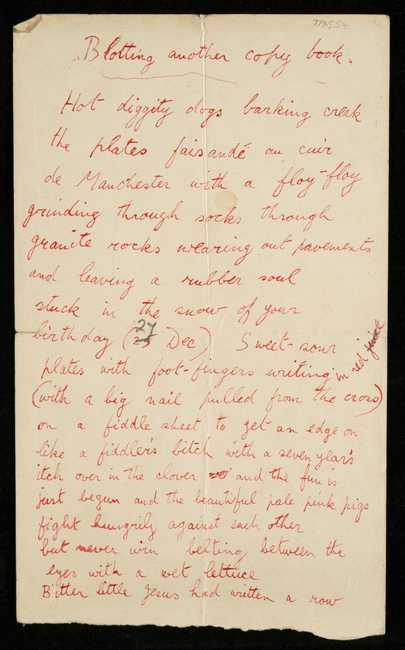 Blotting another copy book.
Hot diggity dogs barking creak
the plates faisandé au cuir
de Manchester with a floy-floy
grinding through socks through
granite rocks wearing out pavements
and leaving a rubber soul
stuck in the snow of your
birthday (27 Dec) Sweet-sour
plates with foot-fingers writing in red juice
(with a big nail pulled from the cross)
on a fiddle sheet to get an edge on
like a fiddler's bitch with a seven year's
itch over in the clover and the fun is
just begun and the beautiful pale pink pigs
fight hungrily against each other
but never win belting between the
eyes with a wet lettuce
Bitter little Jesus had written a row